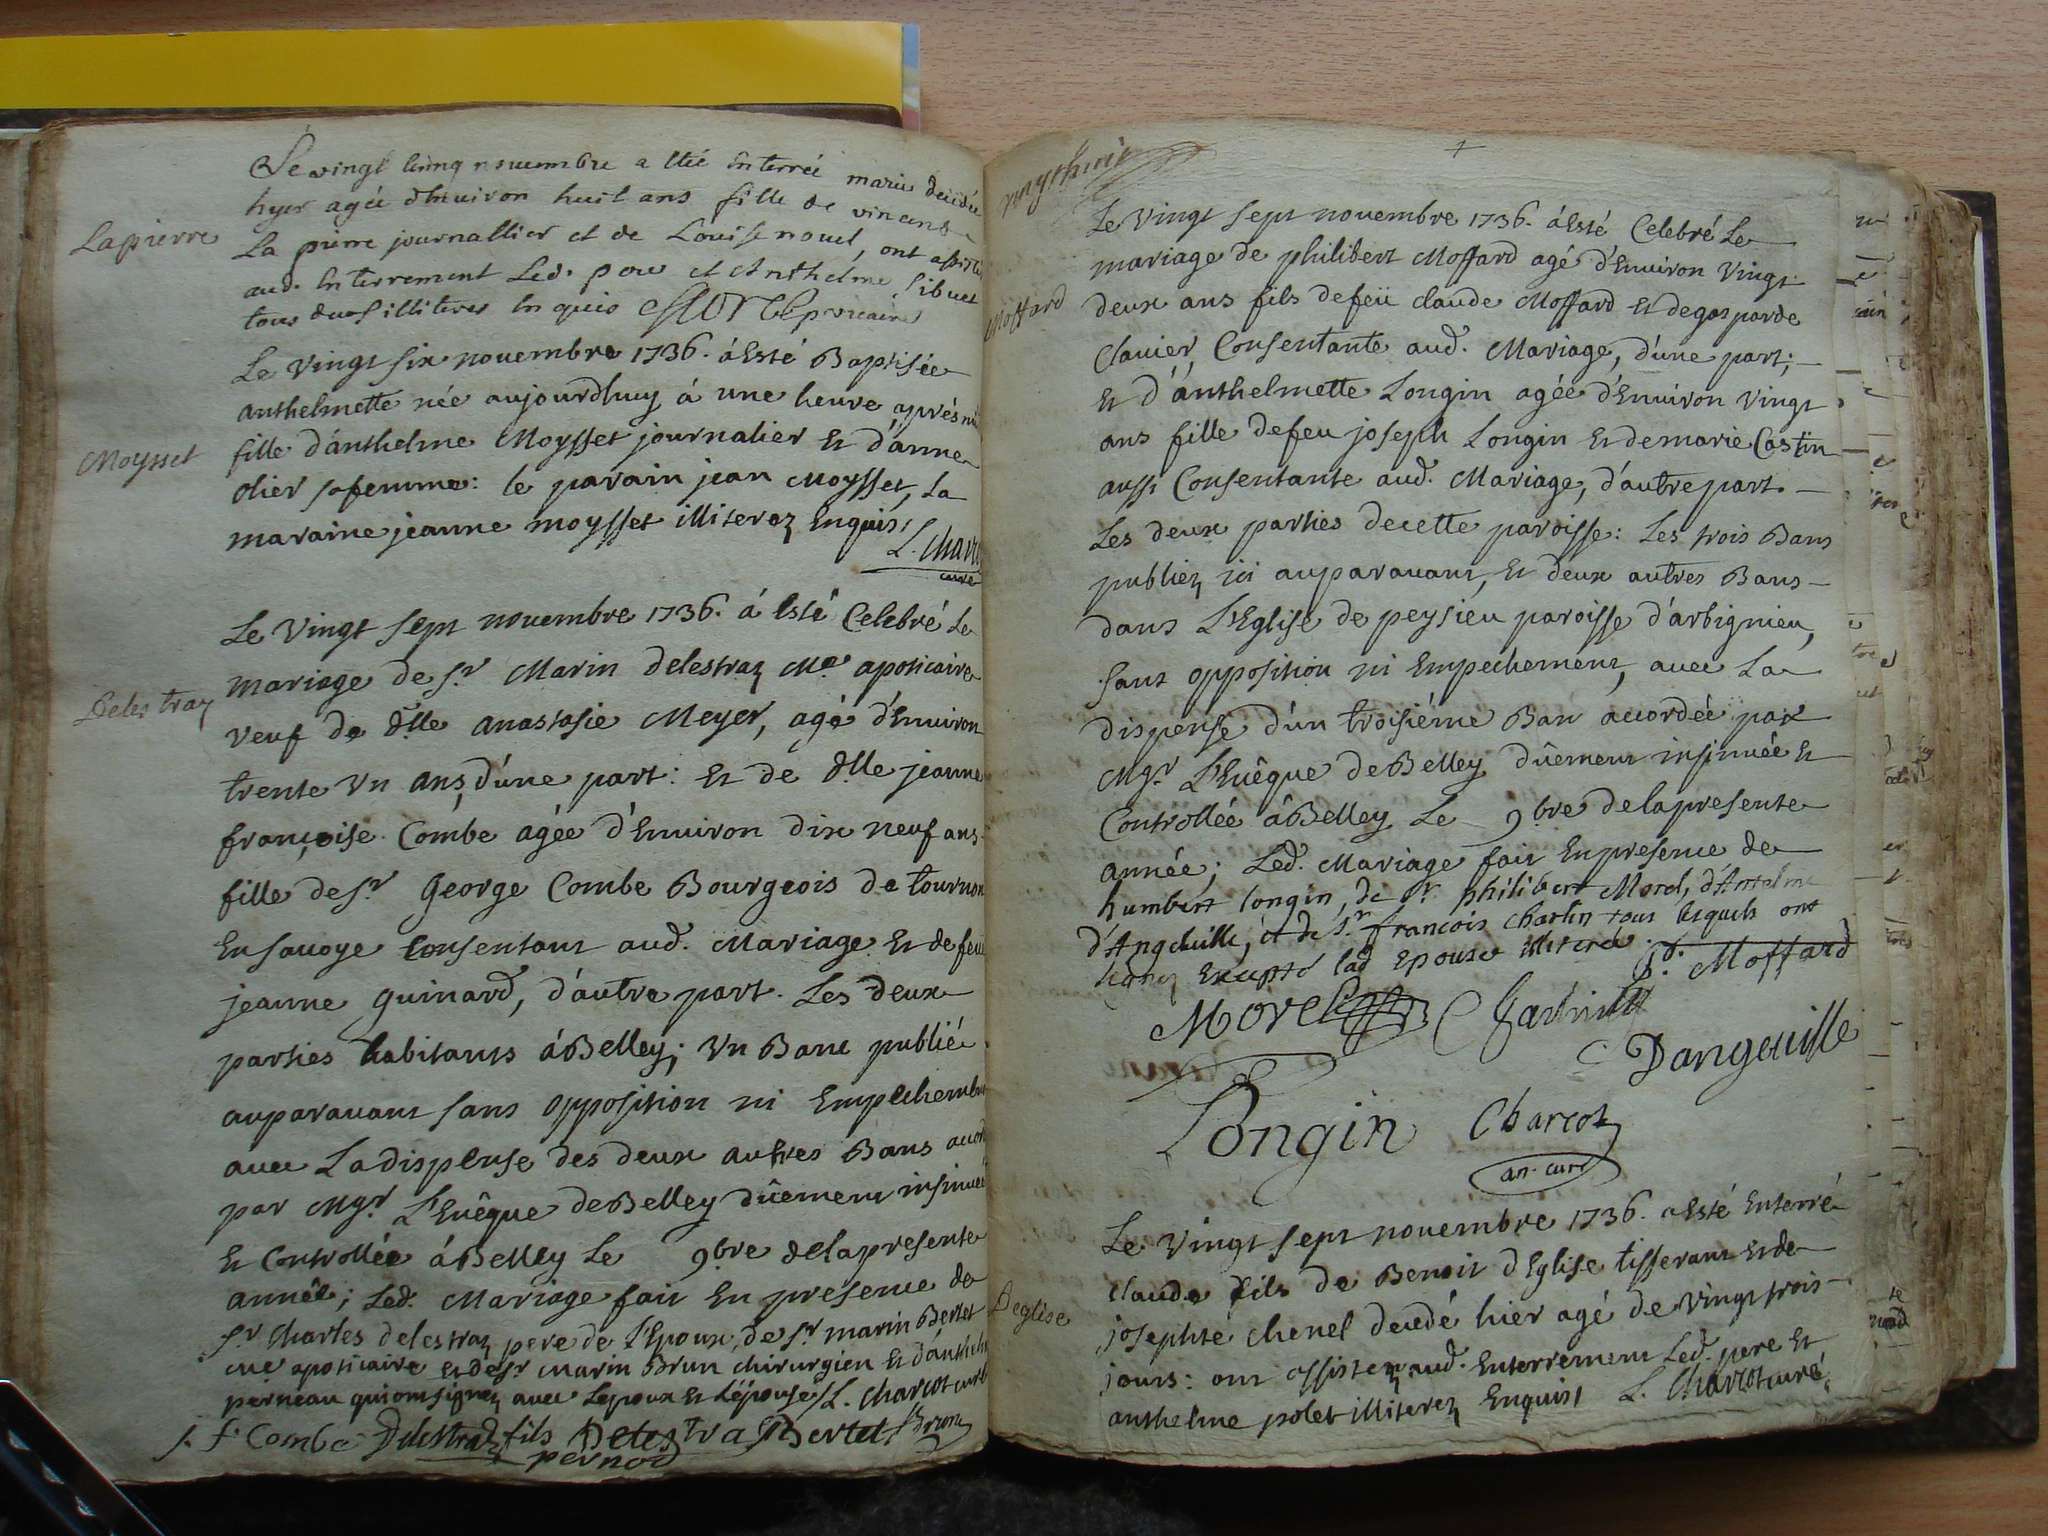 Le vingt cinq novembre a été Enterrée marie decedée
hyer agée d'Environ huit ans fille de vincent
Lapierre
La pierre journallier et de Louise nouel, ont assisté
aud. Enterrement Led. pere et Anthelme Sibuet
tous deux illiteres Enquis vicaire
Le Vingt six novembre 1736. á Esté Baptisée
anthelmette née aujourdhuy á une heure aprés mi
Moysset
fille d'anthelme Moysset journalier Et d'anne
olier sa femme: le parain jean Moysset, La
maraine jeanne moysset illiterez Enquis;
L. Charc
curé
Le Vingt sept novembre 1736. á Esté Celebré Le
mariage de sr. Marin delestraz Me. apoticaire
Delestraz
veuf de dlle anastasie Meyer, agé d'Environ
trente Vn ans, d'une part: Et de dlle jeanne
françoise Combe agée d'Environ dix neuf ans
fille de sr George Combe Bourgeois de tournon
En savoye Consentant aud. Mariage Et de feüe
jeanne guinard, d'autre part. Les deux
parties habitants á Belley; Vn Banc publié
auparavant sans opposition ni Empechement
avec La dispense des deux autres Bans accor
par Mgr. L'Evêque de Belley dûement insinuée
Et Controllée á Belley Le 9bre de la presente
année; Led. Mariage fait En presence de
sr. Charles delestraz pere de l'Epoux, de sr marin Bertet
me apoticaire et de sr marin Brun chirurgien Et d'anthelm
perneau qui ont signez avec Lepoux Et Lépouse / L. Charcot curé
j. f. Combe Delestraz fils Delestraz Bertet Brun
pernod
Le Vingt sept novembre 1736. á Esté Celebré Le
mariage de philibert Moffard agé d'Environ Vingt
Moffard
deux ans fils de feü claude Moffard Et de gasparde
Clavier, Consentante aud. Mariage, d'une part;
Et d'anthelmette Longin agée d'Environ Vingt
ans fille de feu joseph Longin Et de marie Castin
aussi Consentante aud. Mariage, d'autre part.
Les deux parties de cette paroisse: Les trois Bans
publiez ici auparavant, Et deux autres Bans
dans L'Eglise de peysieu paroisse d'arbignieu,
sans opposition ni Empechement, avec La
dispense d'un troisiéme Ban accordée par
Mgr. L'Evêque de Belley dûement insinuée Et
Controllée á Belley Le 9bre de la presente
année; Led. Mariage fait En presence de
humbert longin, de sr. philibert Morel, d'Antelme
d'Angeville, et de sr. francois charlin tous lesquels ont
signez Excepté lad Epouse illiterée.
p. Moffard
Morel
Dangeville
Longin Charcot
arc. curé
Le Vingt sept novembre 1736. a Esté Enterré
claude fils de Benoit d'Eglise tisserant Et de
Deglise
josephte chenel decedé hier agé de vingt trois
jours: ont assistez aud. Enterrement Led. pere Et
anthelme polet illiterez Enquis; L. Charcot curé.